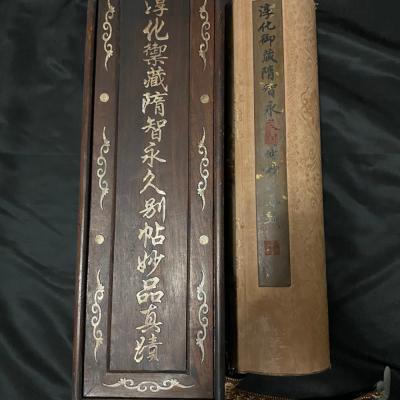 淳化御藏隋智永久别帖妙品真蹟
淳化御藏隋智永久别帖妙